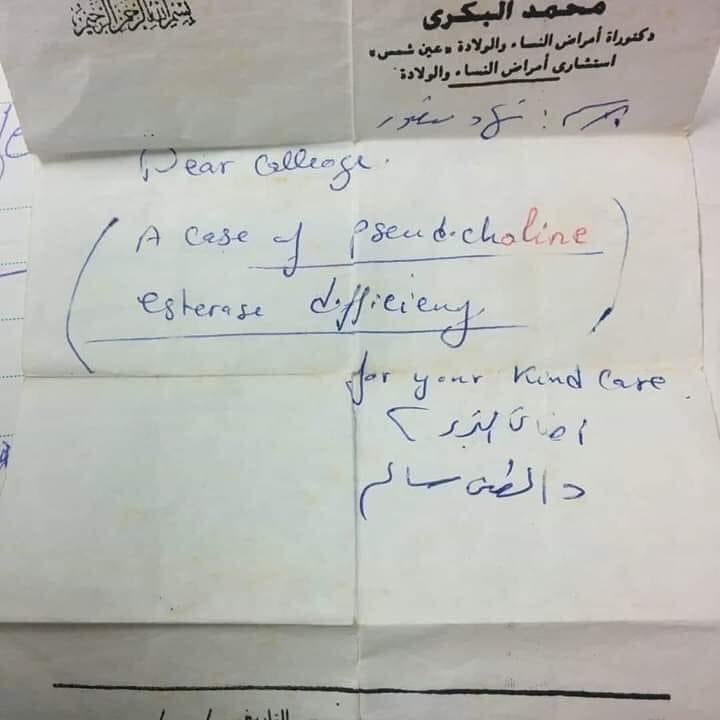 بسم الله الرحمن الرحيم
محمد البكرى
دكتوراة أمراض النساء والولادة «عين شمس»
استشارى أمراض النساء والولادة
Dear Colleage.
( A case of pseudocholine
esterase difficieny )
for your kind care.
د سالم
التاريخ / /